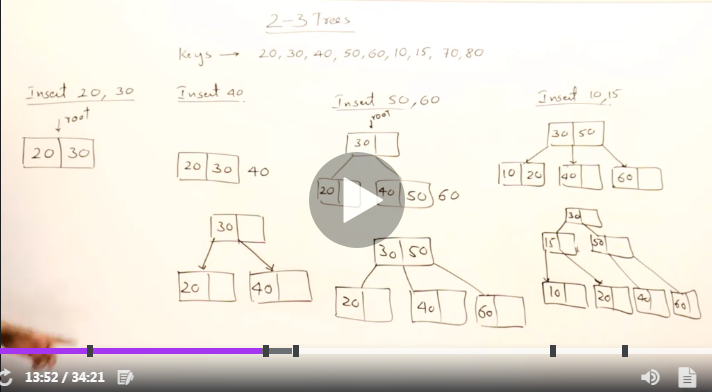 2-3 Trees
Keys → 20, 30, 40, 50, 60, 10, 15, 70, 80
Insert 20, 30
root
20 30
Insert 40
20 30 40
30
20 40
Insert 50, 60
root
30
20 40 50 60
30 50
20 40 60
Insert 10, 15
30 50
10 20 40 60
30
15 50
10 20 40 60
13:52 / 34:21